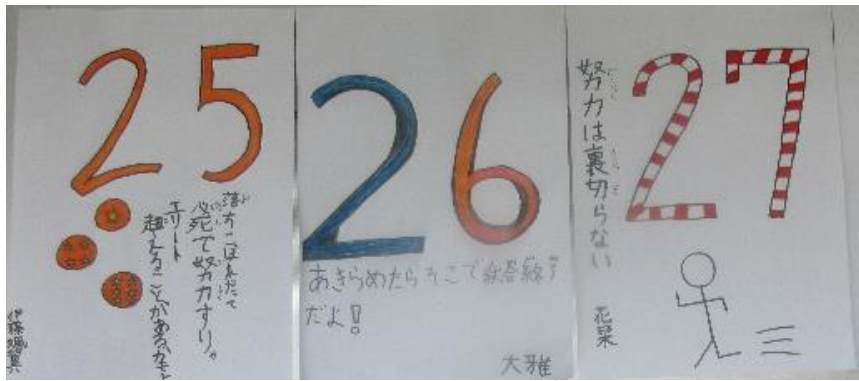 25
落ちこぼれだって
必死で努力すりゃ
エリート
超えることがあるかもよ
伊藤
26
あきらめたらそこで試合終了
だよ!
大雅
27
努力は裏切らない
花栞